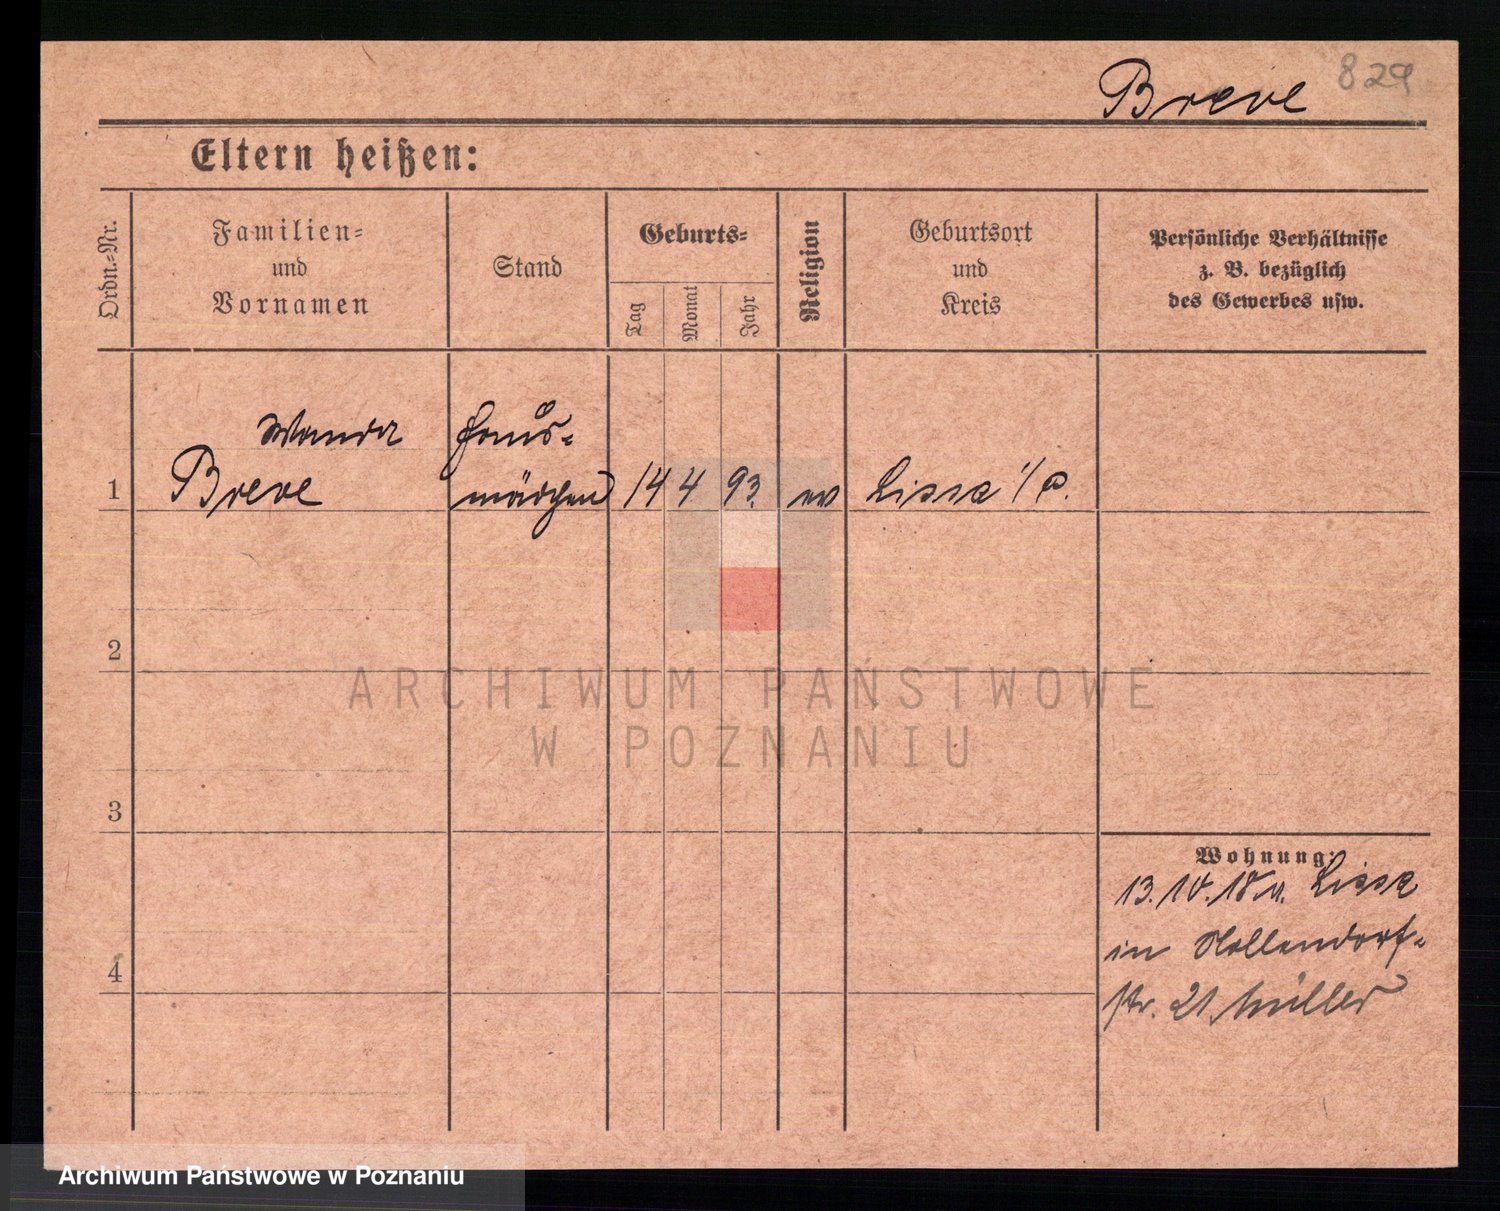 Breve 829
Eltern heißen:
Ordn.-Nr.
Familien-
und
Vornamen
Stand
Geburts-
Tag
Monat
Jahr
Religion
Geburtsort
und
Kreis
Persönliche Verhältnisse
z. B. bezüglich
des Gewerbes usw.
Wanda Haus-
1 Breve mädchen 14 4 93. ev Lissa i/P.
2
ARCHIWUM PAŃSTWOWE
W POZNANIU
3
Wohnung:
13.10.18 n. Lissa
in
4
str. 21. Müller
Archiwum Państwowe w Poznaniu